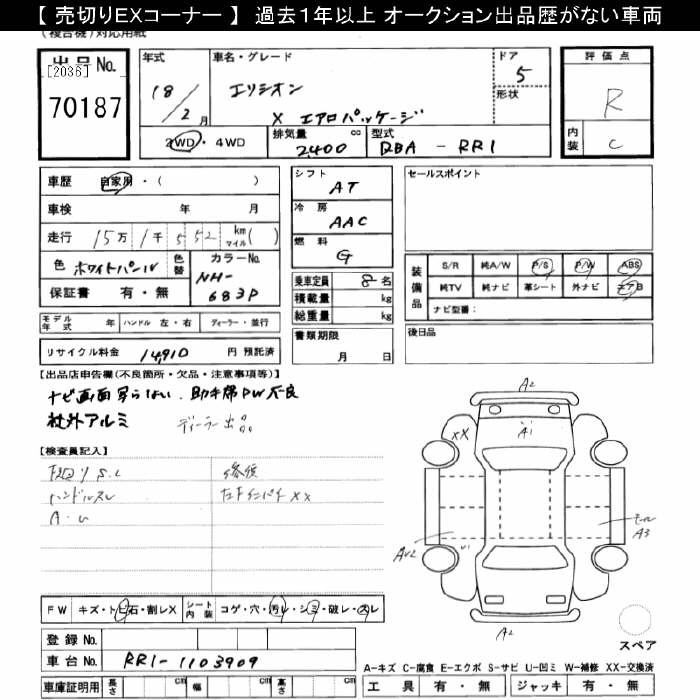 【 売切りEXコーナー 】 過去１年以上 オークション出品歴がない車両
(複合機)対応用紙
出品No.
[2036]
70187
年式
18/2月
車名・グレード
エリシオン
X エアロパッケージ
ドア
5
形状
評価点
R
内装
C
2WD・4WD
排気量 cc
2,400
型式
DBA - RR1
車歴 自家用・( )
車検 年 月
走行 15万 1千 5 52 km マイル( )
色 ホワイトパール
色替
カラーNo.
NH-
683P
保証書 有・無
シフト
AT
冷房
AAC
燃料
G
乗車定員 8 名
積載量 kg
総重量 kg
書類期限
月 日
セールスポイント
装備品
S/R 純A/W P/S P/W ABS
純TV 純ナビ 革シート 外ナビ エアB
ナビ型番:
後日品
モデル年式 年 ハンドル 左・右 ディーラー・並行
リサイクル料金 14,910 円 預託済
【出品店申告欄(不良箇所・欠品・注意事項等)】
ナビ画面写らない. 助手席PW不良
社外アルミ ディーラー出品
【検査員記入】
下回りS.C 修復
ハンドルスレ 左Fインパネ XX
A・U
A2
XX
A1
AU2
モール
A3
A2
FW キズ・トビ石・割レX シート内装 コゲ・穴・汚レ・シミ・破レ・スレ
登録No.
車台No. RR1-1103909
車庫証明用 長さ cm 幅 cm 高さ cm
スペア
A-キズ C-腐食 E-エクボ S-サビ U-凹ミ W-補修 XX-交換済
工具 有・無 ジャッキ 有・無